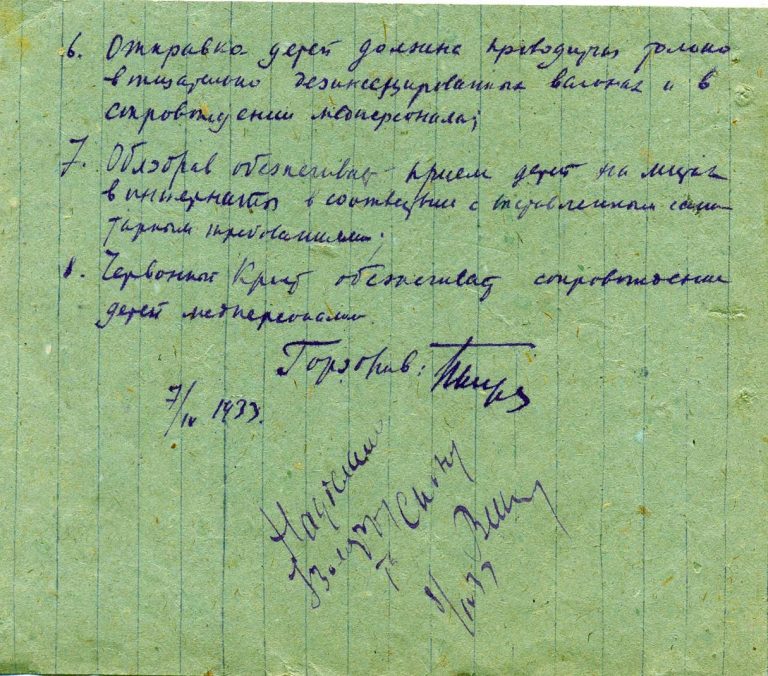 6. Отправка детей должна проводиться только
в тщательно дезинсецированных вагонах и в
сопровождении медперсонала;
7. Облздрав обеспечивает прием детей на местах
в интернаты в соответствии с поставленным сани-
тарным требованиями;
8. Червонный Крест обеспечивает сопровождение
детей медперсоналом.
Горздрав:
7/IV 1933.
Надіслано
т.
8/IV 33